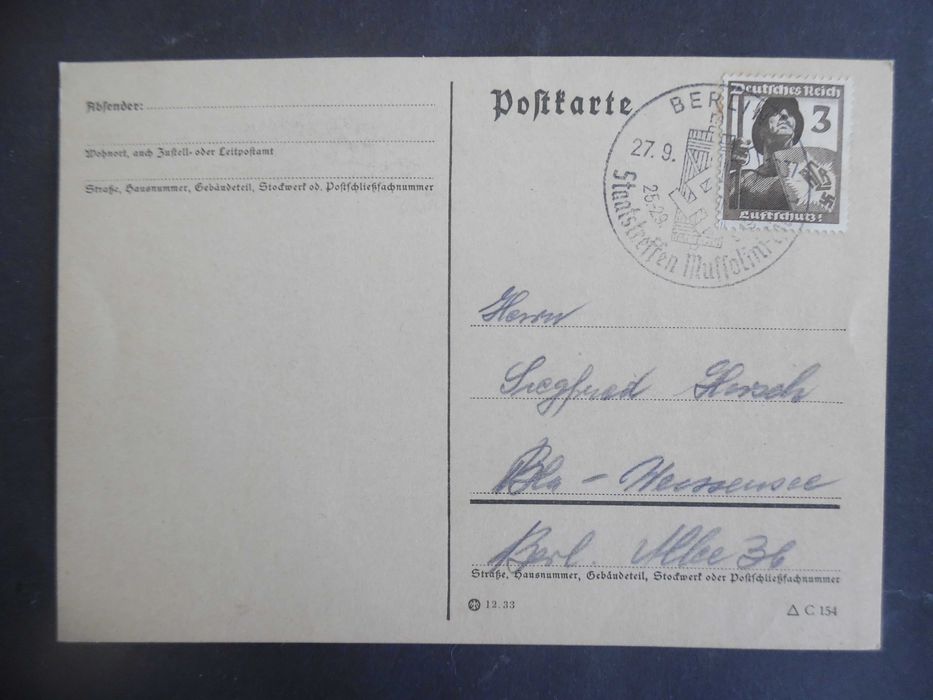 Absender:
Wohnort, auch Zustell- oder Leitpostamt
Straße, Hausnummer, Gebäudeteil, Stockwerk od. Postschließfachnummer
Postkarte
BERLIN
27. 9.
25.-29.
Staatstreffen Mussolini
Deutsches Reich
3
Luftschutz!
Herrn
Siegfried Hirsch
Bln - Weissensee
Berl. Allee 36
Straße, Hausnummer, Gebäudeteil, Stockwerk oder Postschließfachnummer
12. 33
C 154